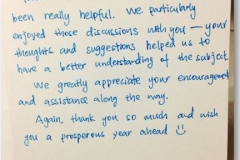 been really helpful. We particularly
enjoyed those discussions with you — your
thoughts and suggestions helped us to
have a better understanding of the subject
We greatly appreciate your encouragement
and assistance along the way.
Again, thank you so much and wish
you a prosporous year ahead